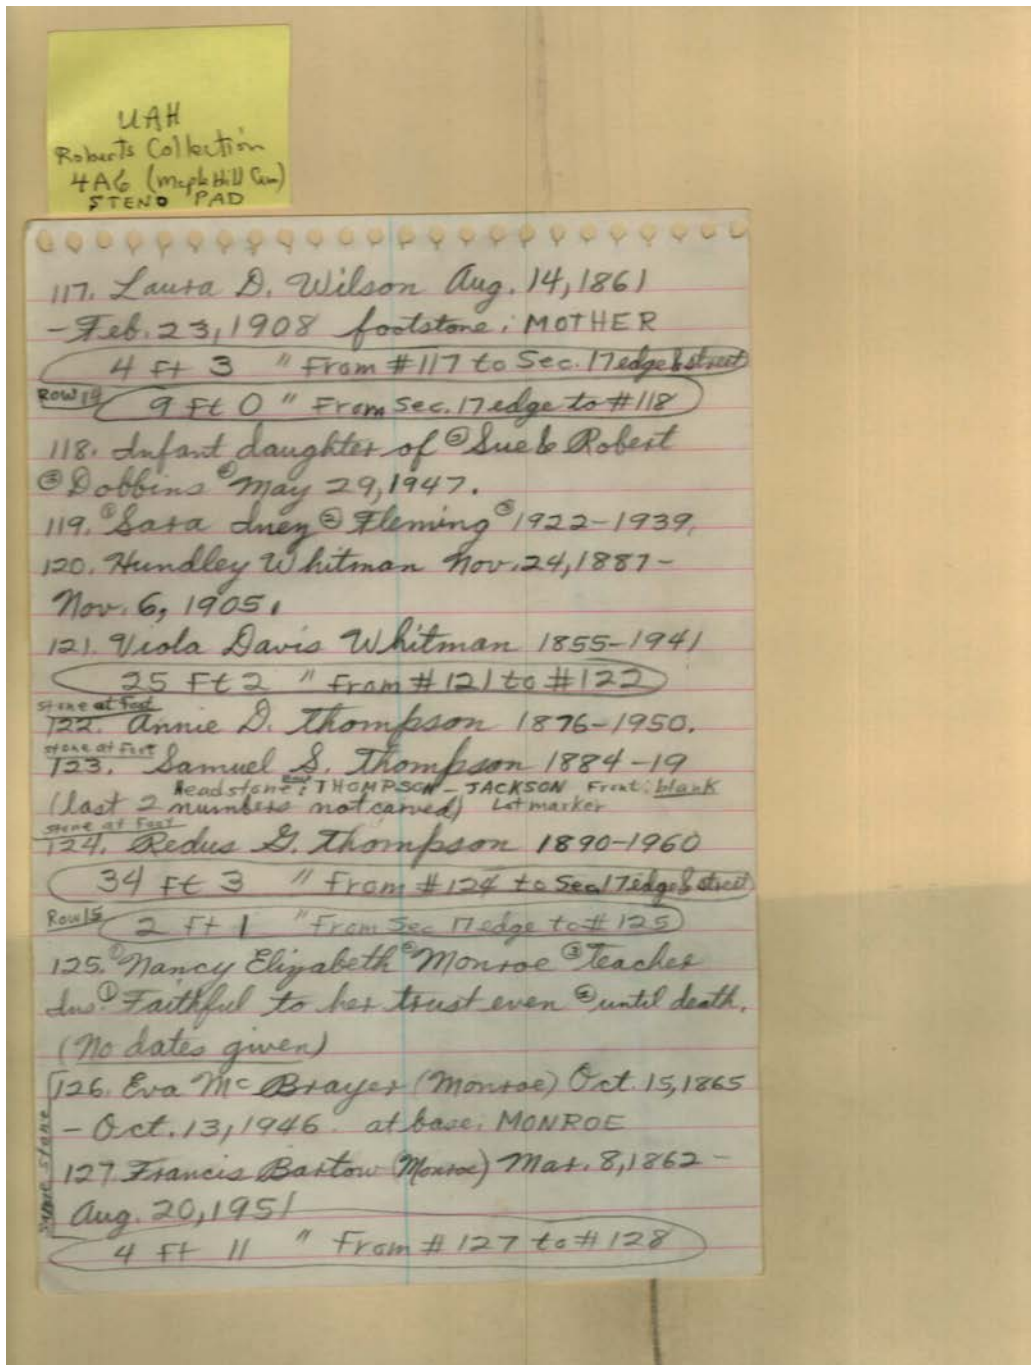 UAH
Roberts Collection
4A6 (Maple Hill Cem)
STENO PAD
117. Laura D. Wilson Aug. 14, 1861
- Feb. 23, 1908 footstone: MOTHER
4 Ft 3 " From #117 to Sec. 17 edge & street
Row 14 9 Ft 0 " From Sec. 17 edge to #118
118. Infant daughter of ② Sue & Robert
③ Dobbins ④ May 29, 1947.
119. ① Sara Inez ② Fleming ③ 1922-1939.
120. Hundley Whitman Nov. 24, 1887-
Nov. 6, 1905.
121. Viola Davis Whitman 1855-1941
25 Ft 2 " From #121 to #122
stone at Foot
122. Annie D. Thompson 1876-1950.
stone at Foot
123. Samuel S. Thompson 1884-19
Headstone: THOMPSON - JACKSON Front: blank
(last 2 numbers not carved) Lot marker
stone at Foot
124. Redus G. Thompson 1890-1960
34 Ft 3 " From #124 to Sec 17 edge & street
Row 15 2 Ft 1 " From Sec 17 edge to #125
125. ① Nancy Elizabeth ② Monroe ③ Teacher
Ins. ① Faithful to her trust even ② until death.
(No dates given)
126. Eva McBrayer (Monroe) Oct. 15, 1865
- Oct. 13, 1946. at base: MONROE
same stone
127 Francis Bartow (Monroe) Mar. 8, 1862 -
Aug. 20, 1951
4 Ft 11 " From #127 to #128